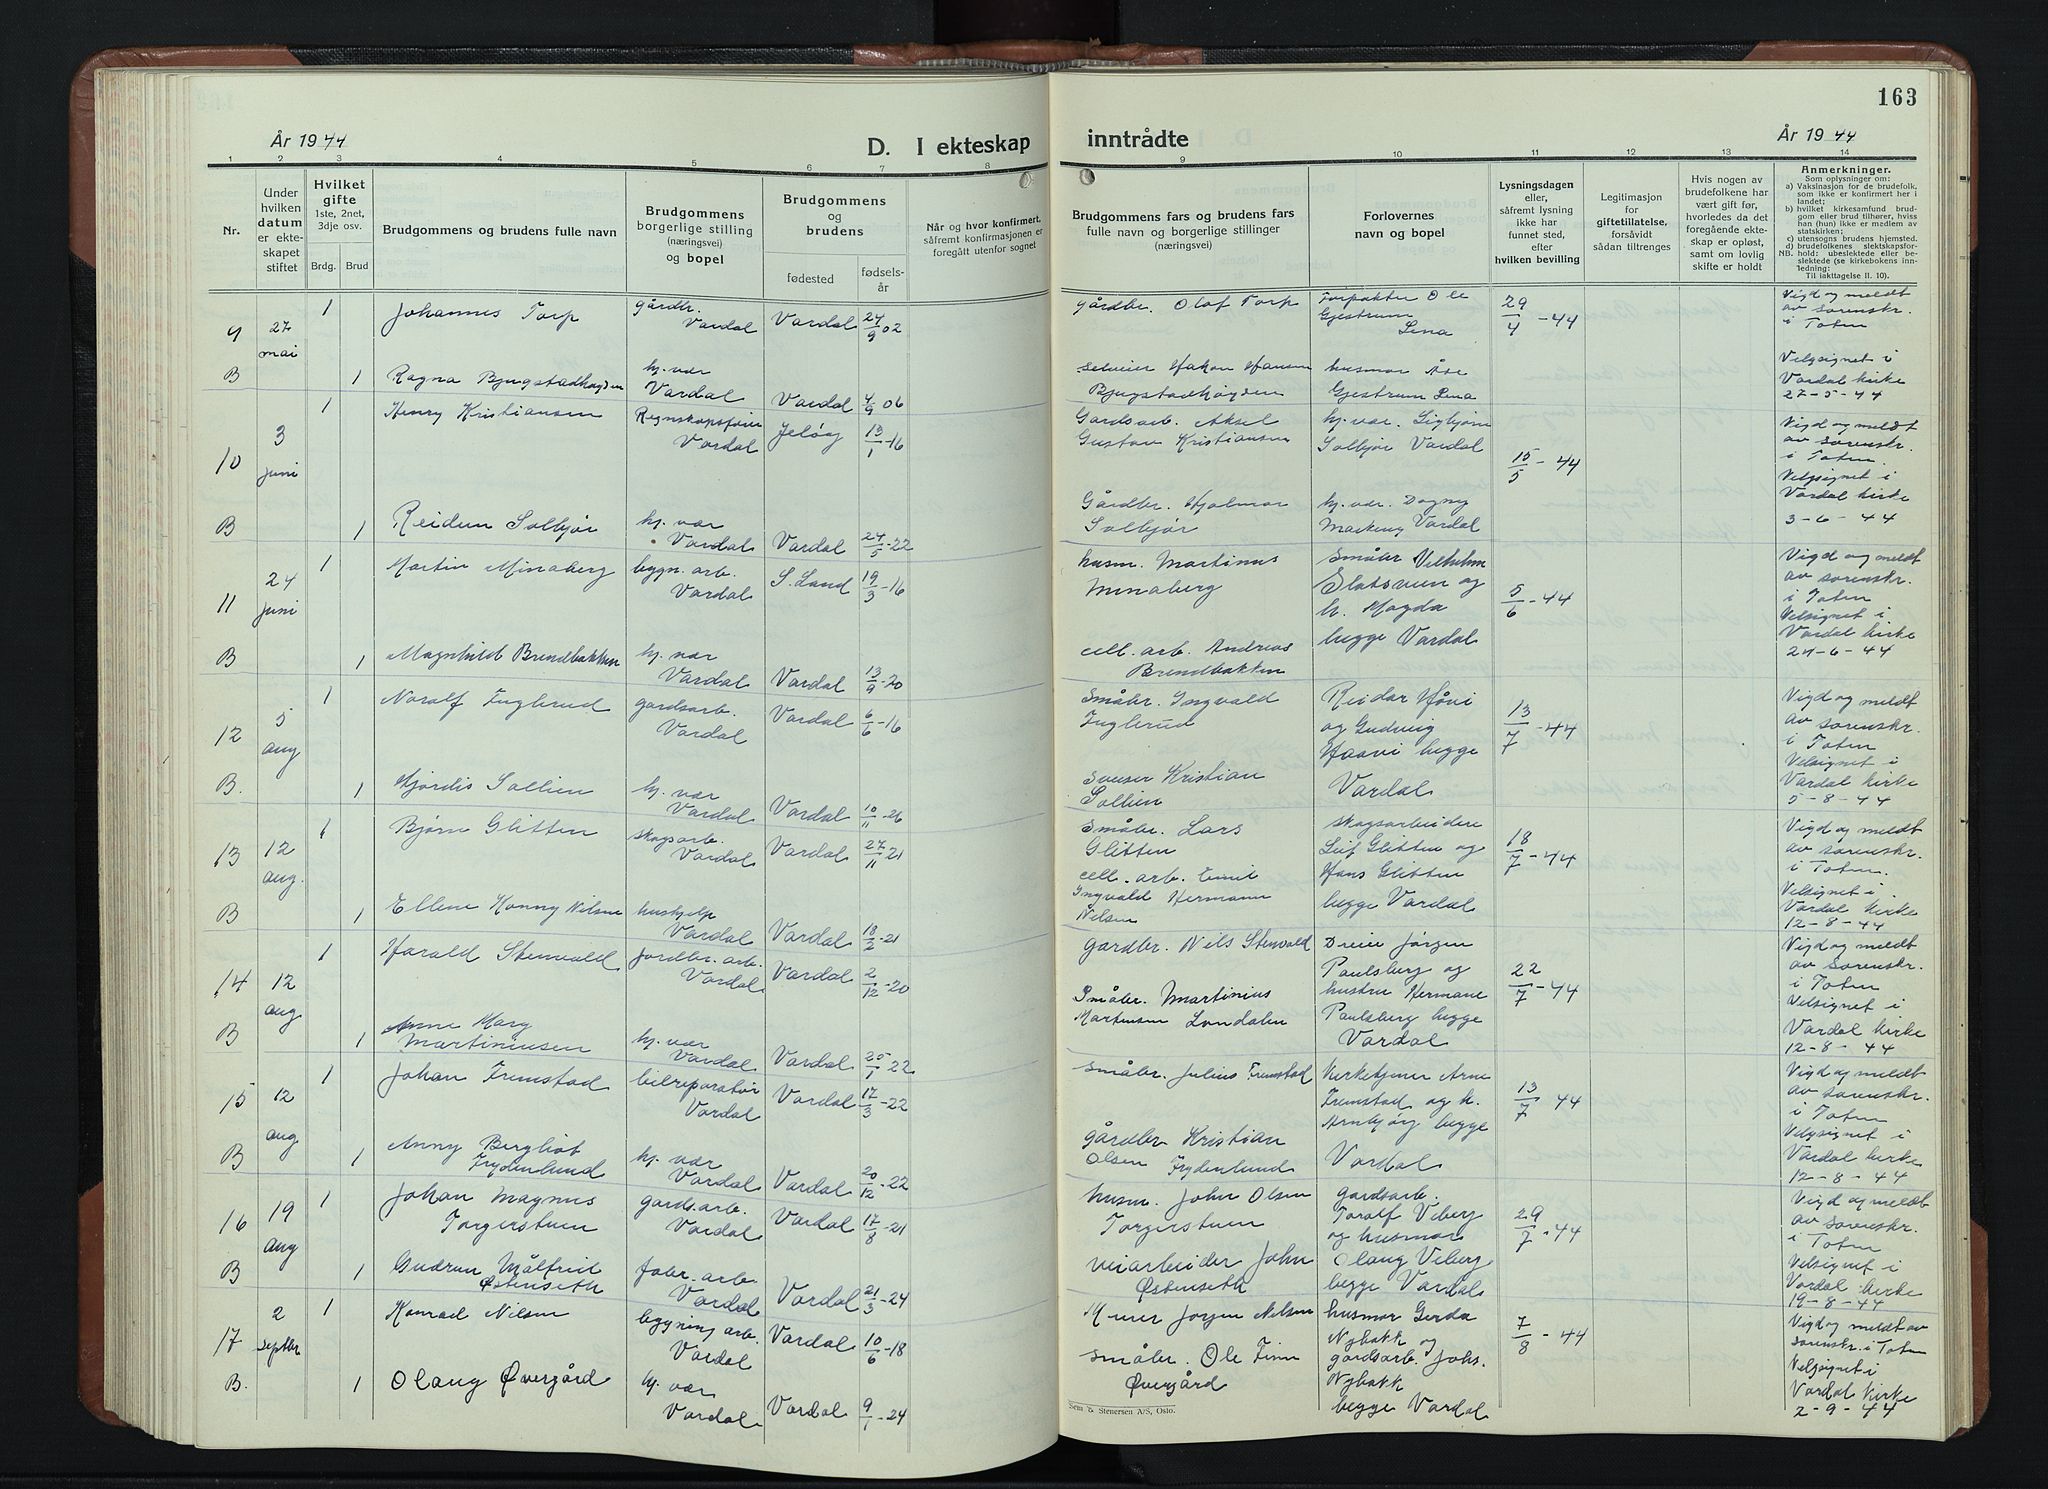 163
År 1944
D. I ekteskap inntrådte
År 1944
1 2 3 4 5 6 7 8 9 10 11 12 13 14
Nr.
Under hvilken datum er ekteskapet stiftet
Hvilket gifte
1ste, 2net, 3dje osv.
Brdg. Brud
Brudgommens og brudens fulle navn
Brudgommens borgerlige stilling (næringsvei) og bopel
Brudgommens og brudens
fødested
fødselsår
Når og hvor konfirmert, såfremt konfirmasjonen er foregått utenfor sognet
Brudgommens fars og brudens fars fulle navn og borgerlige stillinger (næringsvei)
Forlovernes navn og bopel
Lysningsdagen eller, såfremt lysning ikke har funnet sted, efter hvilken bevilling
Legitimasjon for giftetillatelse, forsåvidt sådan tiltrenges
Hvis nogen av brudefolkene har vært gift før, hvorledes da det foregående ekteskap er opløst, samt om lovlig skifte er holdt
Anmerkninger.
Som oplysninger om:
a) Vaksinasjon for de brudefolk, som ikke er konfirmert her i landet;
b) hvilket kirkesamfund brudgom eller brud tilhører, hviss han (hun) ikke er medlem av statskirken;
c) utensogns brudens hjemsted.
d) brudefolkenes slektskapsforhold: ubeslektede eller beslektede (se kirkebokens innledning:
NB.
Til iakttagelse II. 10).
9 27 mai 1 Johannes Torp gårdbr. Vardal Vardal 24/9 02 Gårdbr. Olaf Torp Forpakter Ole Gjestrum Lena 29/4 - 44 Vigd og meldt av Sorenskr. i Toten
B 1 Ragna Bjugstadhagen hj. vær Vardal Vardal 4/9 06 selveier Hakon Hansen Bjugstadhøgden husmor Åse Gjestrum Lena Velsignet i Vardal kirke 27-5-44
10 3 juni 1 Henry Kristiansen Regnskapsfører Vardal Jeløy 13/1 -16 Gardsarb. Aksel Gustav Kristiansen hj. vær. Sigbjørn Solbjør Vardal 15/5 - 44 Vigd og meldt av sorenskr. i Toten.
B 1 Reidun Solbjør hj. vær Vardal Vardal 24/5 -22 Gårdbr. Hjalmar Solbjør hj. vær. Dagny Vardal Velsignet i Vardal kirke 3-6-44
11 24 juni 1 Martin Minaberg bygn. arb. Vardal S. Land 19/3 -16 husm. Martinus Minaberg Småbr Vilhelm Slatsveen og h. Magda begge Vardal 5/6 - 44 Vigd og meldt av sorenskr. i Toten
B 1 Magnhild Brendbakken hj. vær Vardal Vardal 13/9 -20 cell. arb. Andreas Brendbakken Velsignet i Vardal kirke 24-6-44
12 5 aug 1 Noralf Fuglerud gardsarb. Vardal Vardal 6/6 -16 Småbr. Ingvald Fuglerud Reidar Høvi og Gudveig Haavi begge Vardal 13/7 - 44 Vigd og meldt av sorenskr. i Toten
B. 1 Hjørdis Sollien hj. vær Vardal Vardal 10/11 -26 Kristian Sollien Velsignet i Vardal kirke 5-8-44
13 12 aug. 1 Bjørn Glitten skogsarb. Vardal Vardal 27/11 21 Småbr. Lars Glitten skogsarbeidere Leif Glitten og Hans Glitten begge Vardal 18/7 - 44 Vigd og meldt av sorenskr. i Toten.
B 1 Ellen Konny Nilsen hushjelp Vardal Vardal 18/2 -21 cell. arb. Emil Ingvald Hermann Nilsen Velsignet i Vardal kirke 12-8-44
14 12 aug 1 Harald Stenvald Jordbr. arb. Vardal Vardal 2/12 -20 gardbr. Nils Stenvald Dreier Jørgen Paulsberg og hustru Hermane Paulsberg begge Vardal 22/7 - 44 Vigd og meldt av Sorenskr. i Toten
B 1 Anne Mary Martiniusen hj. vær Vardal Vardal 25/1 - 22 Småbr. Martinius Martinsen Londalen Velsignet i Vardal kirke 12-8-44
15 12 aug 1 Johan Fremstad bilreparatør Vardal Vardal 17/3 -22 småbr. Julius Fremstad Kirketjener Arne Fremstad og h. Arnbjørg begge Vardal 13/7 - 44 Vigd og meldt av sorenskr. i Toten
B 1 Anny Bergliot Frydenlund hj. vær Vardal Vardal 20/12 - 22 gårdbr Kristian Olsen Frydenlund Velsignet i Vardal kirke 12-8-44
16 19 aug 1 Johan Magnus Torgerstuen gards. arb. Vardal Vardal 17/8 -21 husm. John Olsen Torgerstuen gardsarb. Toralf Viberg og husmor Olaug Viberg begge Vardal 29/7 - 44 Vigd og meldt av sorenskr. i Toten
B 1 Gudrun Målfrid Østenseth fabr. arb. Vardal Vardal 21/3 - 24 veiarbeider John Østenseth Velsignet i Vardal kirke 19-8-44
17 2 septbr 1 Konrad Nilsen bygning arb. Vardal Vardal 10/6 -18 Murer Jørgen Nilsen husmor Gerda Nybakk og gardsarb. Johs. Nybakk begge Vardal 7/8 - 44 Vigd og meldt av sorenskr. i Toten
B. 1 Olaug Øvergård hj. vær Vardal Vardal 9/1 - 24 småbr. Ole Finn Øvergård Velsignet i Vardal Kirke 2-9-44
Sem & Stenersen A/S, Oslo.